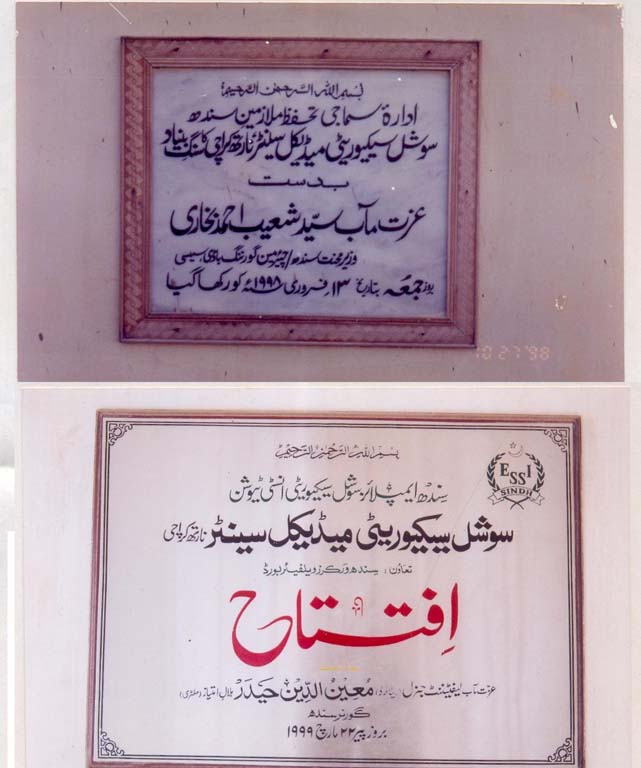 بسم اللہ الرحمن الرحیم
ادارۂ سماجی تحفظ ملازمین سندھ
سوشل سیکیوریٹی میڈیکل سینٹر نارتھ کراچی کا سنگ بنیاد
بدست
عزت مآب سیّد شعیب احمد بخاری
وزیر محنت سندھ/چیئرمین گورننگ باڈی سیسی
بروز جمعہ بتاریخ ۱۳ فروری ۱۹۹۸ء کو رکھا گیا
10 27 '98
بسم اللہ الرحمن الرحیم
ESSI
SINDH
سندھ ایمپلائز سوشل سیکیوریٹی انسٹی ٹیوشن
سوشل سیکیوریٹی میڈیکل سینٹر نارتھ کراچی
تعاون : سندھ ورکرز ویلفیئر بورڈ
افتتاح
عزت مآب لیفٹیننٹ جنرل (ریٹائرڈ) معین الدین حیدر ہلال امتیاز (ملٹری)
گورنر سندھ
بروز پیر ۲۲ مارچ ۱۹۹۹